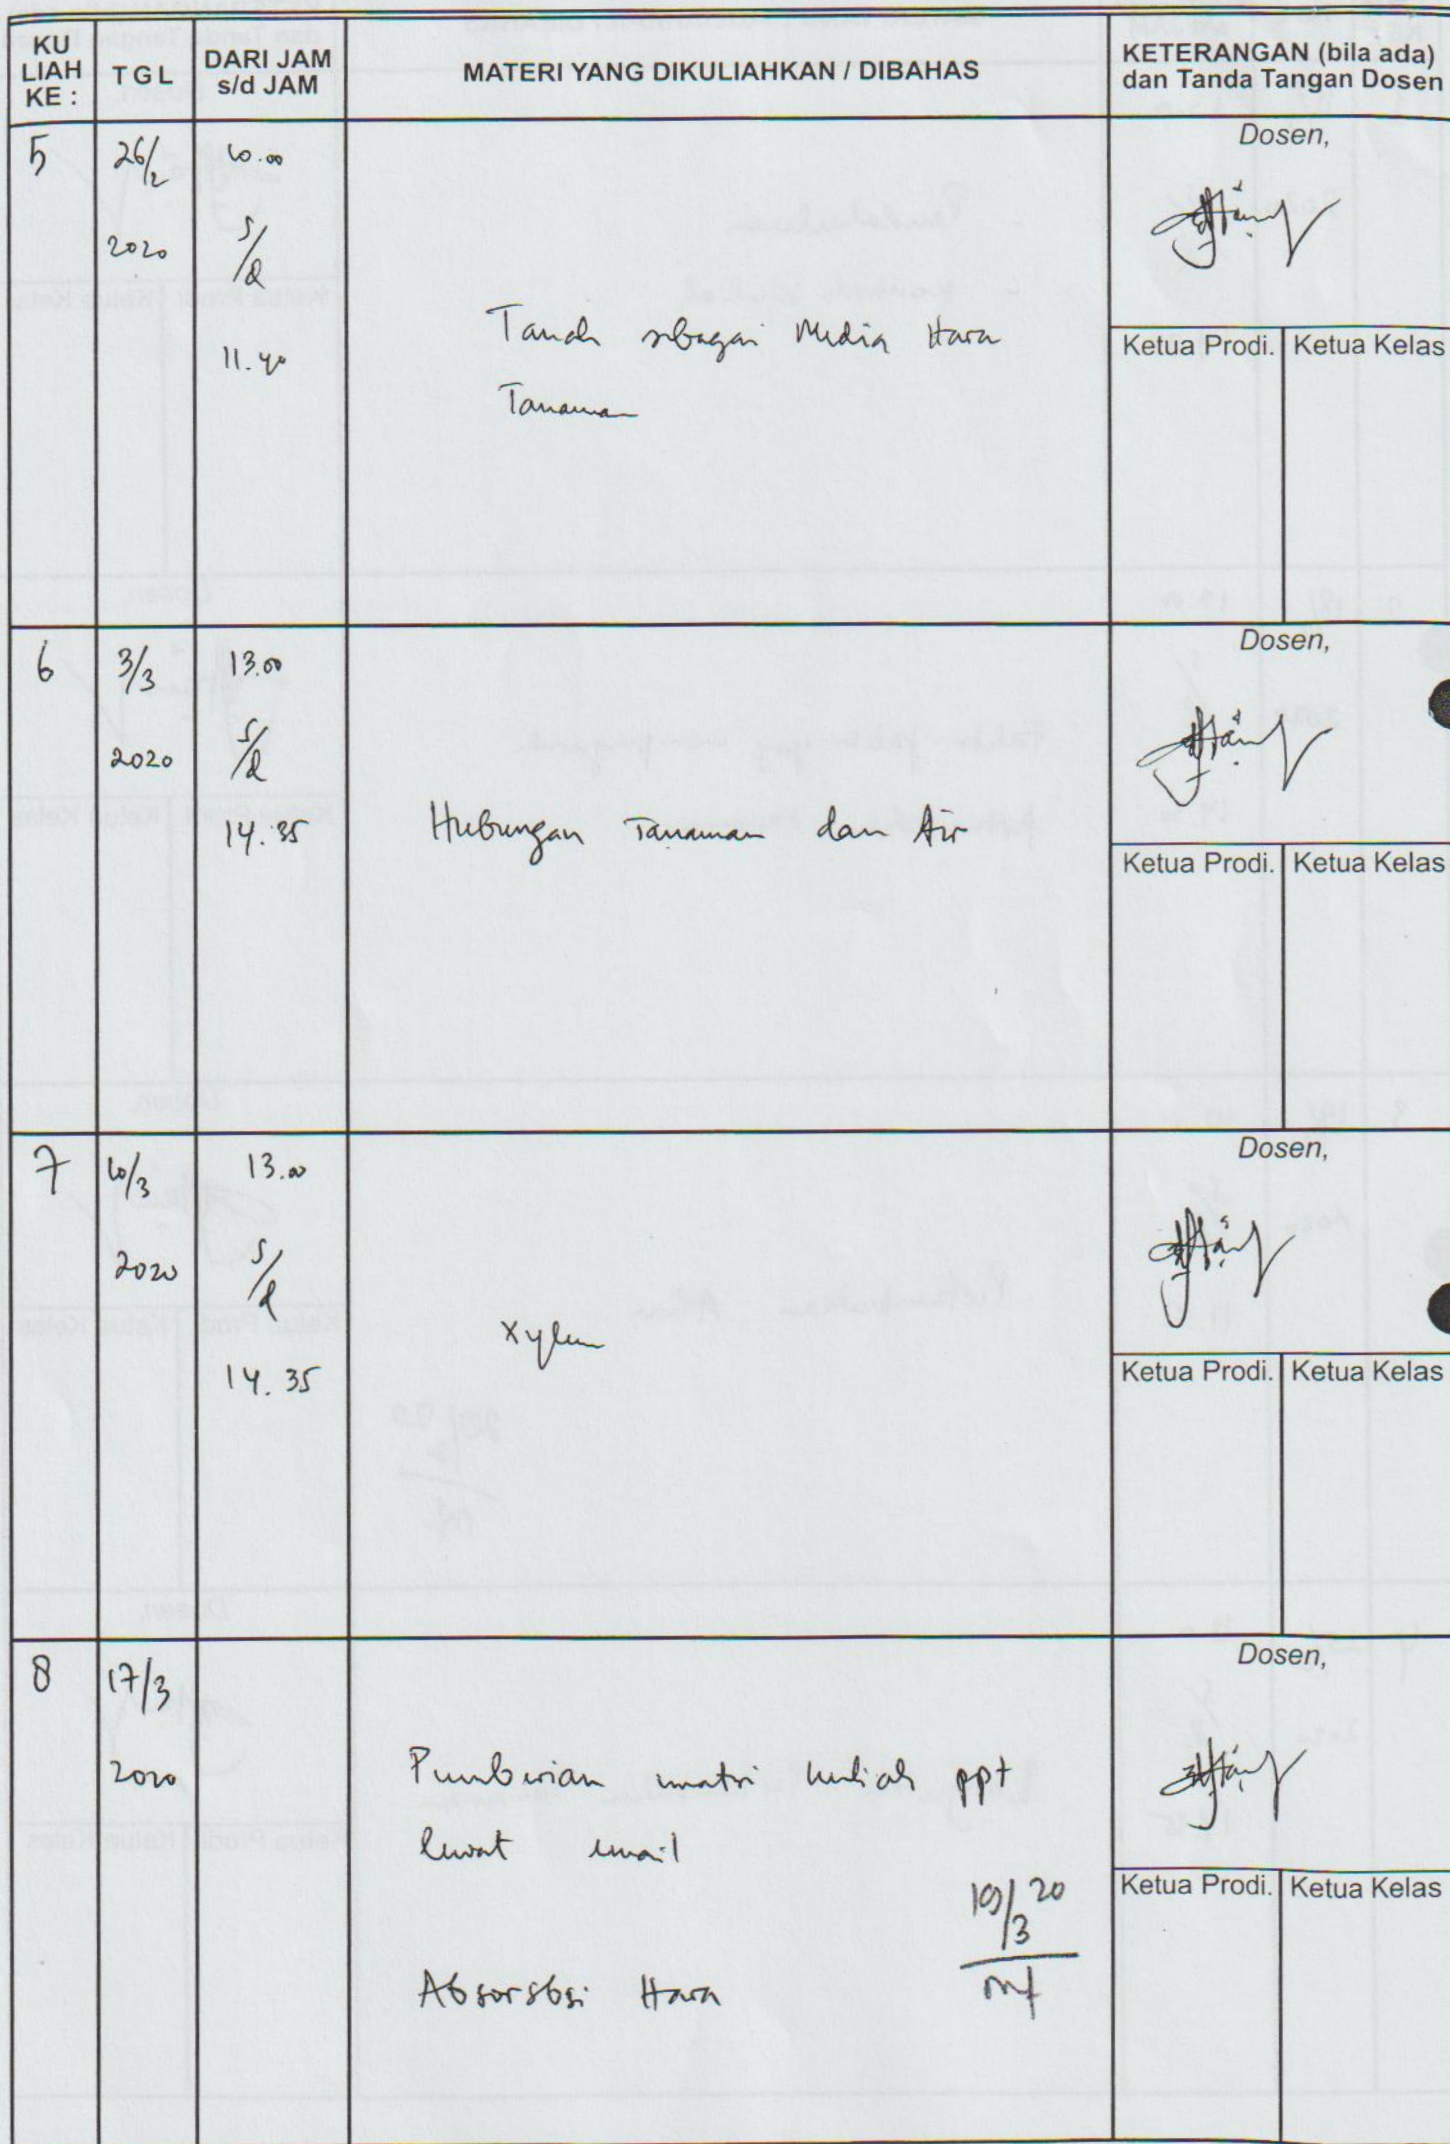 KU LIAH KE :
TGL
DARI JAM s/d JAM
MATERI YANG DIKULIAHKAN / DIBAHAS
KETERANGAN (bila ada) dan Tanda Tangan Dosen
5
26/2
2020
10.00
s/d
11.40
Tanah sebagai Media Hara
Tanaman
Dosen,
Ketua Prodi.
Ketua Kelas
6
3/3
2020
13.00
s/d
14.35
Hubungan Tanaman dan Air
Dosen,
Ketua Prodi.
Ketua Kelas
7
10/3
2020
13.00
s/d
14.35
Xylem
Dosen,
Ketua Prodi.
Ketua Kelas
8
17/3
2020
Pemberian materi kuliah ppt
lewat email
Absorsbsi Hara
19/3 20
Dosen,
Ketua Prodi.
Ketua Kelas